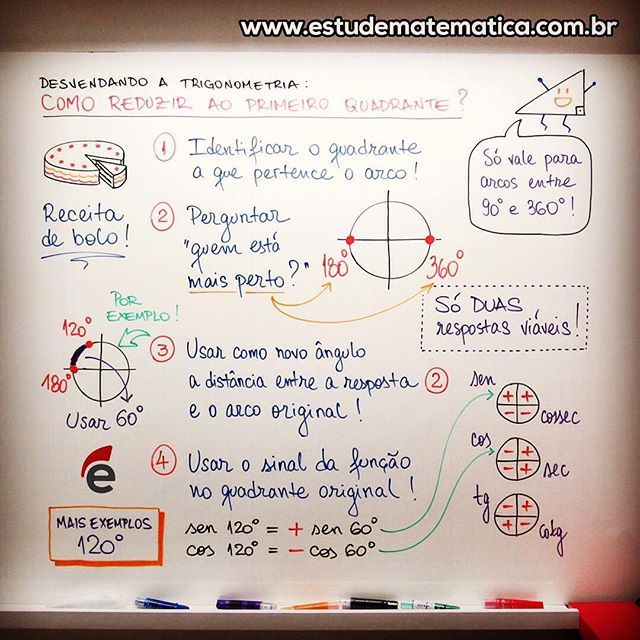 www.estudematematica.com.br
DESVENDANDO A TRIGONOMETRIA:
COMO REDUZIR AO PRIMEIRO QUADRANTE?
Receita
de bolo!
1 Identificar o quadrante
a que pertence o arco!
Só vale para
arcos entre
90° e 360°!
2 Perguntar
"quem está
mais perto?"
180°
360°
Só DUAS
respostas viáveis!
POR
EXEMPLO!
120°
180°
Usar 60°
3 Usar como novo ângulo
a distância entre a resposta 2
e o arco original!
4 Usar o sinal da função
no quadrante original!
sen 120° = + sen 60°
cos 120° = - cos 60°
sen
+ +
- -
cossec
cos
- +
- +
sec
tg
- +
+ -
cotg
e
MAIS EXEMPLOS
120°